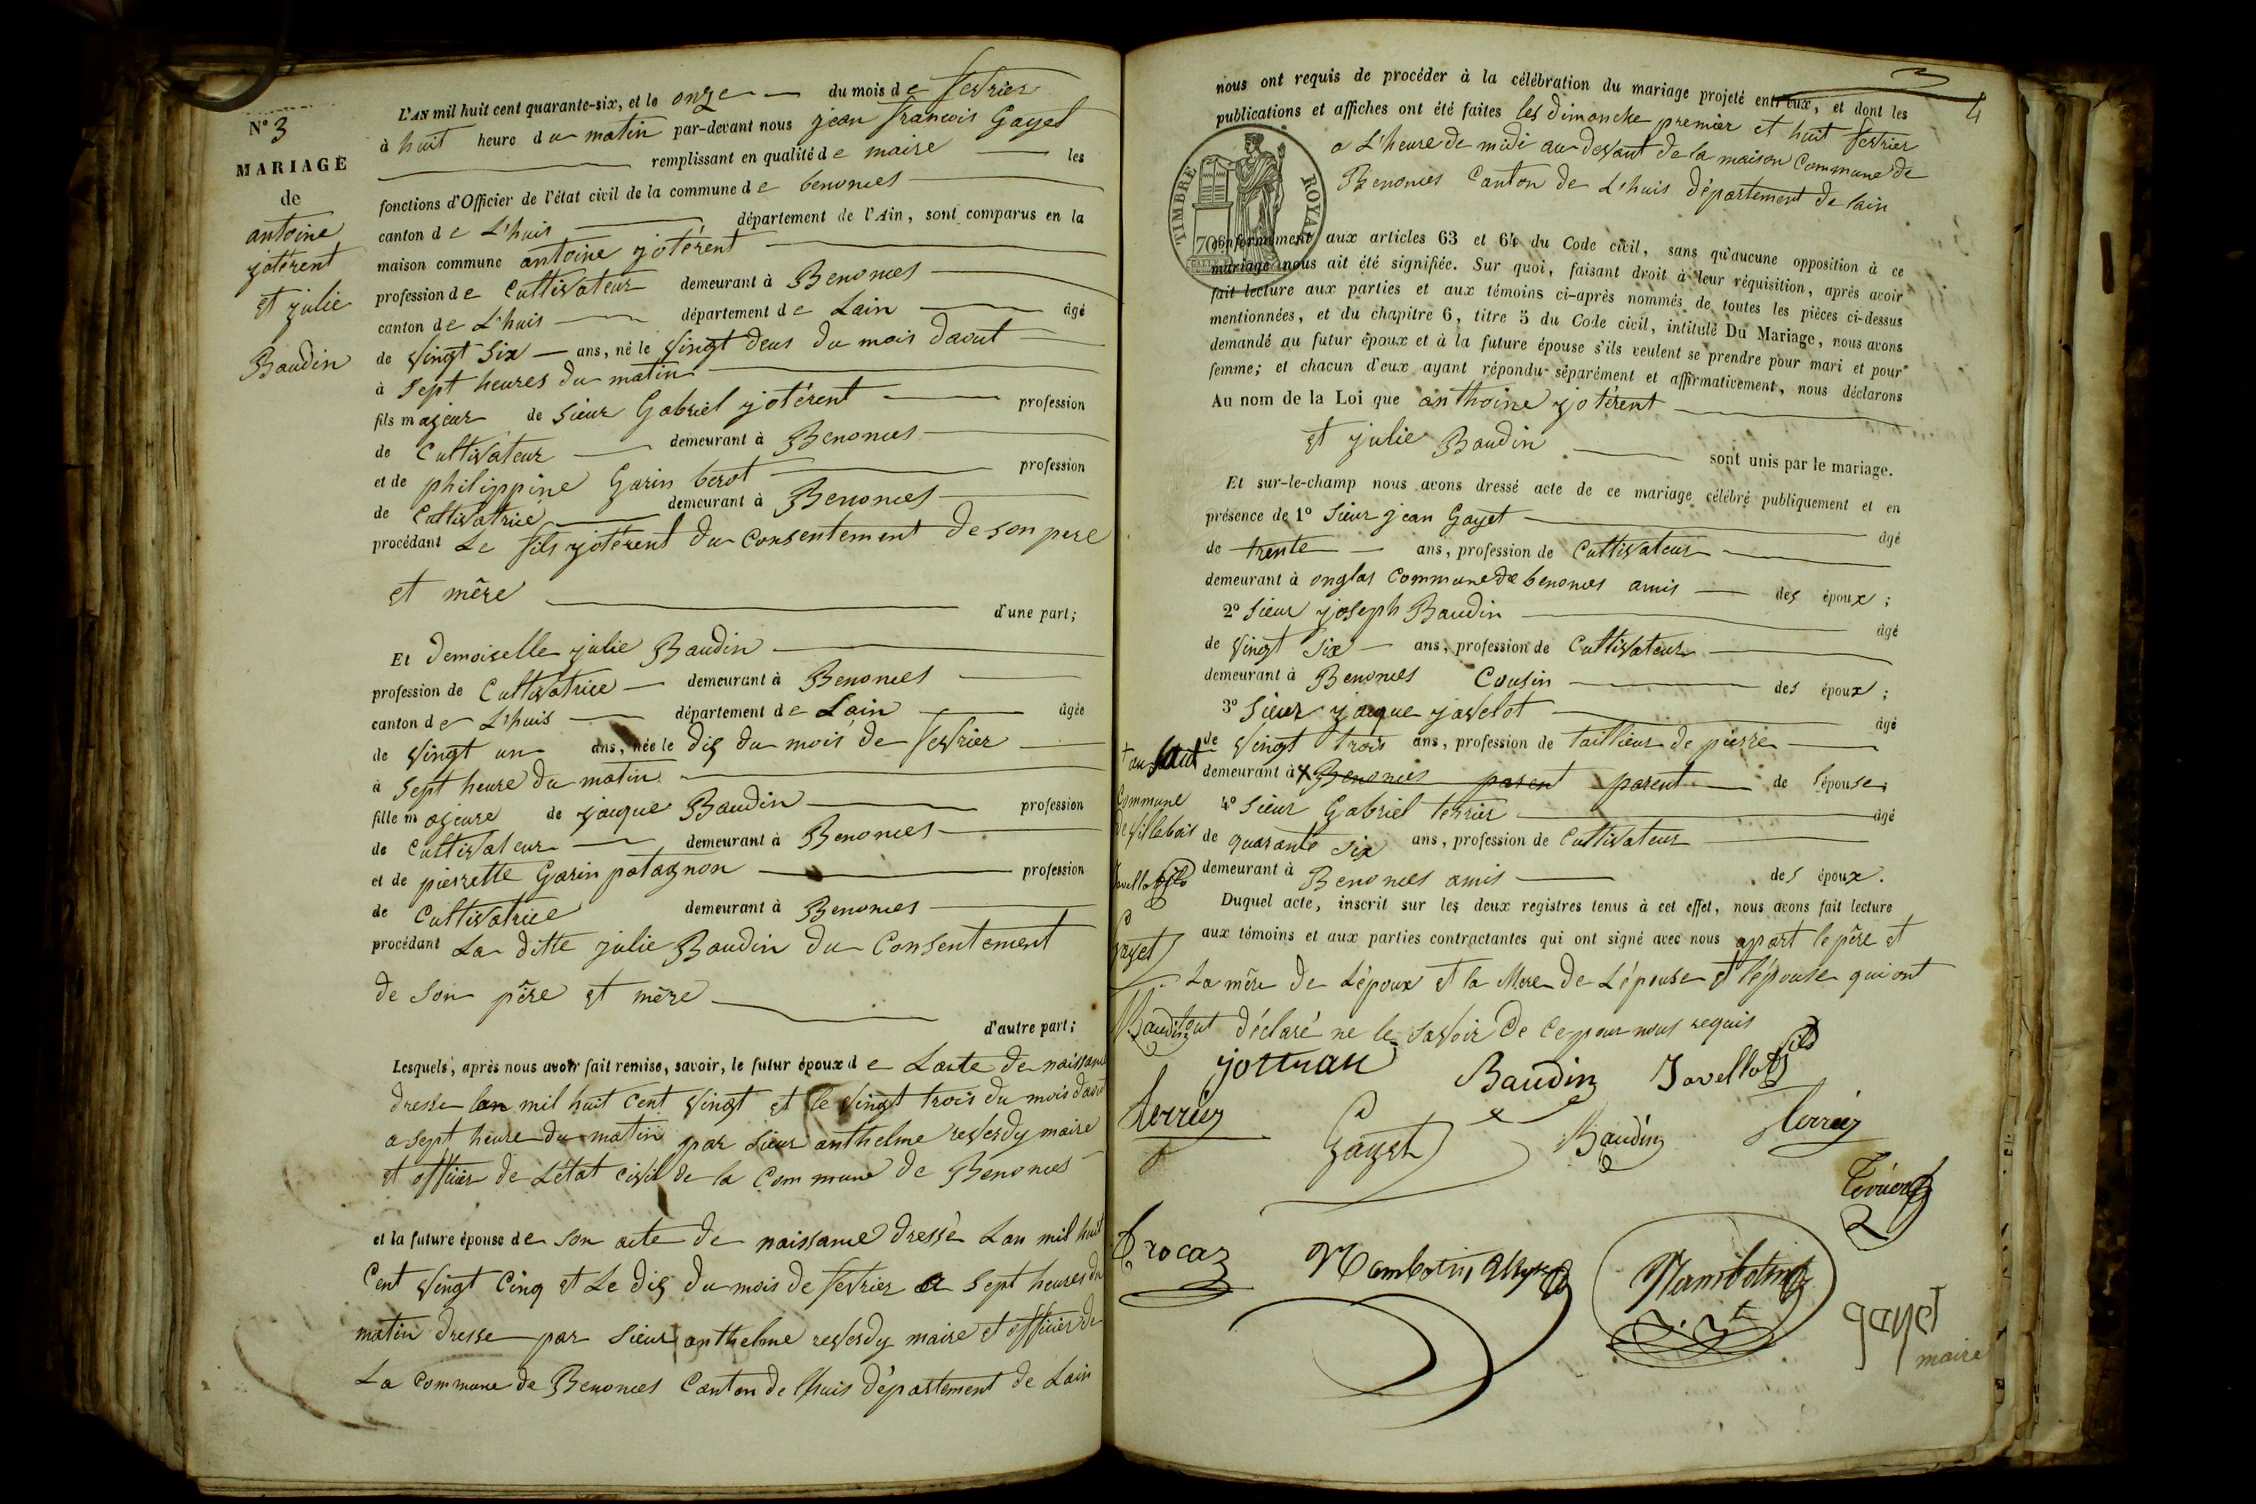 N° 3
MARIAGE
de
antoine
jotérent
et julie
Baudin
L'AN mil huit cent quarante-six, et le onze du mois de fevrier
à huit heure du matin par-devant nous jean francois Gayet
remplissant en qualité de maire les
fonctions d'Officier de l'état civil de la commune de benonces
canton de L'huis département de l'Ain, sont comparus en la
maison commune antoine jotérent
profession de Cultivateur demeurant à Benonces
canton de L'huis département de Lain âgé
de vingt six ans, né le vingt deus du mois davut
à sept heures du matin
fils majeur de sieur Gabriel jotérent profession
de Cultivateur demeurant à Benonces
et de philippine Garin berot profession
de Cultivatrice demeurant à Benonces
procédant Le fils jotérent du Consentement de son pere
et mère d'une part;
Et demoiselle julie Baudin
profession de Cultivatrice demeurant à Benonces
canton de L'huis département de Lain âgée
de vingt un ans, née le dis du mois de fevrier
à sept heure du matin
fille majeure de jaque Baudin profession
de Cultivateur demeurant à Benonces
et de pierrette Garin patagnon profession
de Cultivatrice demeurant à Benonces
procédant La ditte julie Baudin du Consentement
de son père et mère
d'autre part;
Lesquels, après nous avoir fait remise, savoir, le futur époux de Lacte de naissance
dresse lan mil huit Cent vingt et le vingt trois du mois davut
a sept heure du matin par sieur anthelme reverdy maire
et officier de Létat civil de la Commune de Benonces
et la future épouse de son acte de naissance dressé Lan mil huit
Cent vingt Cinq et Le dis du mois de fevrier a sept heures du
matin dresse par sieur anthelme reverdy maire et officier de
La Commune de Benonces Canton de lhuis département de Lain
3
4
nous ont requis de procéder à la célébration du mariage projeté entr'eux, et dont les
publications et affiches ont été faites les dimanche premier et huit fevrier
a L'heure de midi au devant de la maison Commune de
Benonces Canton de L'huis département de lain
TIMBRE ROYAL
70
conformément aux articles 63 et 64 du Code civil, sans qu'aucune opposition à ce
mariage nous ait été signifiée. Sur quoi, faisant droit à leur réquisition, après avoir
fait lecture aux parties et aux témoins ci-après nommés de toutes les pièces ci-dessus
mentionnées, et du chapitre 6, titre 5 du Code civil, intitulé Du Mariage, nous avons
demandé au futur époux et à la future épouse s'ils veulent se prendre pour mari et pour
femme; et chacun d'eux ayant répondu séparément et affirmativement, nous déclarons
Au nom de la Loi que anthoine jotérent
et julie Baudin sont unis par le mariage.
Et sur-le-champ nous avons dressé acte de ce mariage célébré publiquement et en
présence de 1° Sieur jean Gayet âgé
de trente ans, profession de Cultivateur
demeurant à onglas Commune de benonces amis des époux;
2° Sieur joseph Baudin âgé
de vingt six ans, profession de Cultivateur
demeurant à Benonces Cousin des époux;
3° Sieur jaque javelot âgé
de vingt trois ans, profession de taillieur de pierre
demeurant à Benonces parent parent de lépouse;
4° Sieur Gabriel terrier âgé
de quarante six ans, profession de Cultivateur
demeurant à Benonces amis des époux.
Duquel acte, inscrit sur les deux registres tenus à cet effet, nous avons fait lecture
aux témoins et aux parties contractantes qui ont signé avec nous apart le père et
La mère de Lépoux et la Mere de Lépouse et lépouse qui ont
déclaré ne le savoir de ce pour nous requis
au saut
Commune
de villebois
Gayet
Baudin
Baudin Javellot fils
Gayet Baudin
Trocaz
gayet
maire